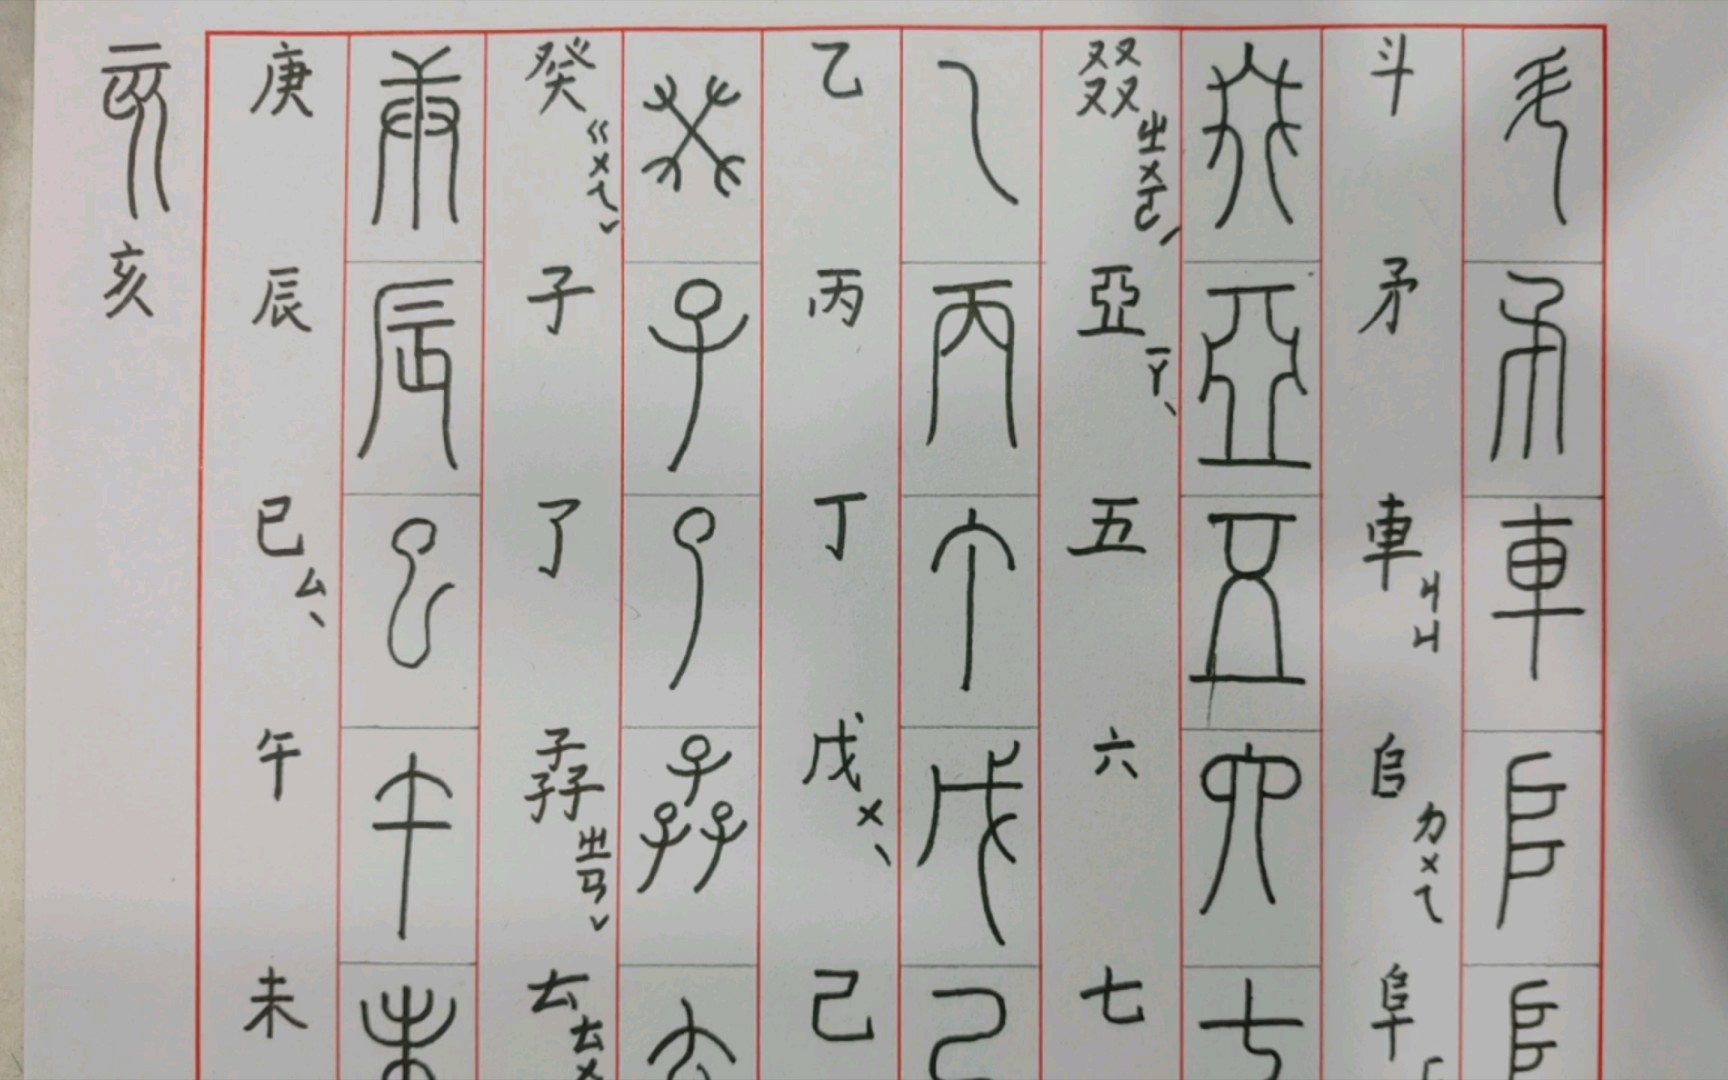 斗
矛
車 ㄐㄩ
𠂤 ㄉㄨㄟ
阜
叕 ㄓㄨㄛˊ
亞 ㄧㄚˋ
五
六
七
乙
丙
丁
戊 ㄨˋ
己
癸 ㄍㄨㄟˇ
子
了
孨 ㄓㄢˇ
𠫓 ㄊㄨ
庚
辰
巳 ㄙˋ
午
未
亥